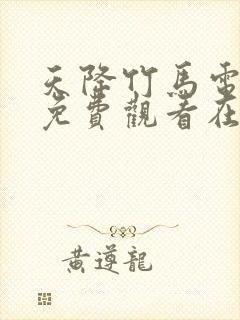 天降竹馬電
免費觀看在
黃導龍